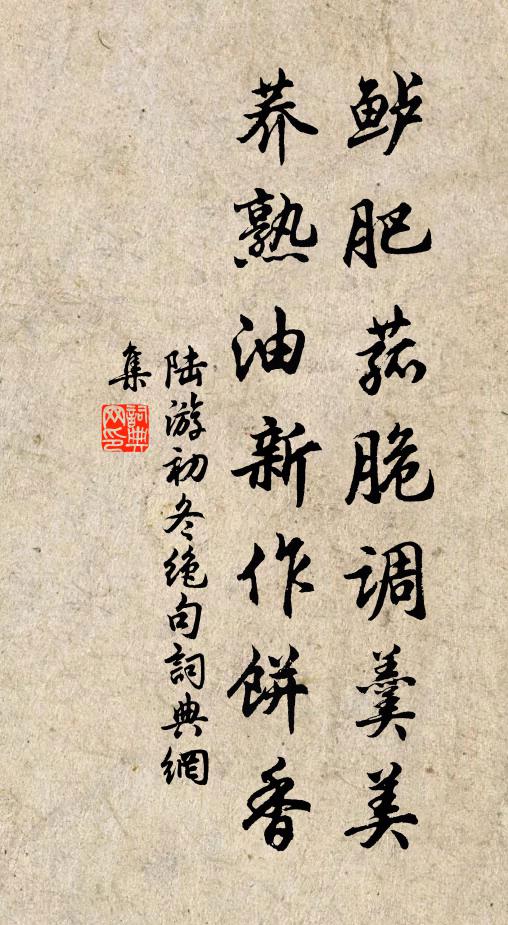 鲈肥菰脆调羹美
荞熟油新作餅香
陆游初冬绝句詞典網
集
詞典
网印